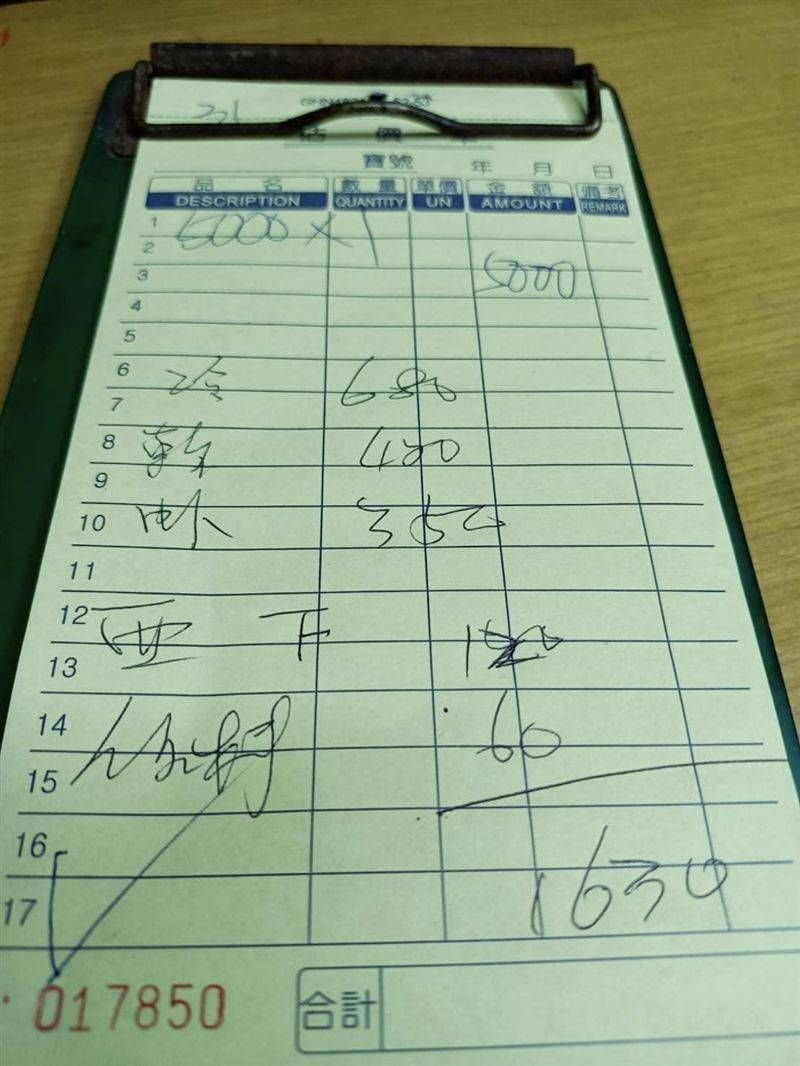 估價單
寶號 年 月 日
品名 數量 單價 金額 備考
DESCRIPTION QUANTITY UN AMOUNT REMARK
1 5000 × 1
2
3 5000
4
5
6 冷 680
7
8 乾 420
9
10 味 350
11
12 西 下 120
13
14 60
15
16 1630
17
017850 合計